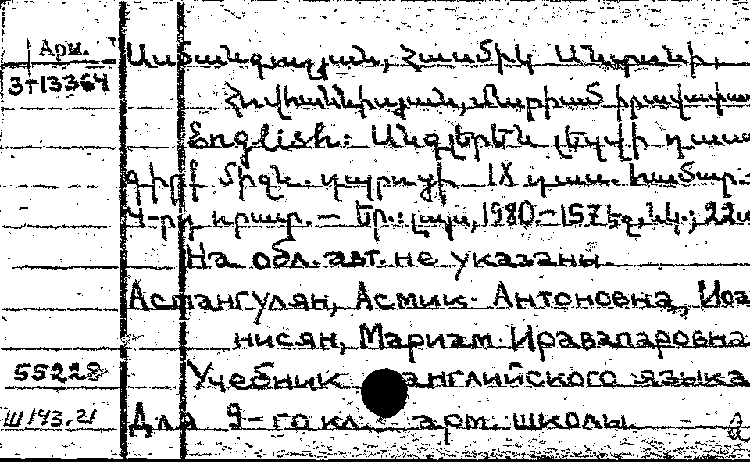 Арм.
3+13364
Աստանգուլյան, Հասմիկ Անտոնի,
Հովհաննիսյան, Մարիամ
English: Անգլերեն լեզվի դաս
գիրք միջն. դպրոցի IX դաս. համար.-
4-րդ հրատ. – Եր.: Լույս, 1980.-157 էջ, նկ.; 22
На обл. авт. не указаны.
Астангулян, Асмик Антоновна, Иоан
нисян, Мариам Иравапаровна
55228
Учебник английского языка
Ш143.21
Для 9-го кл. арм. школы.